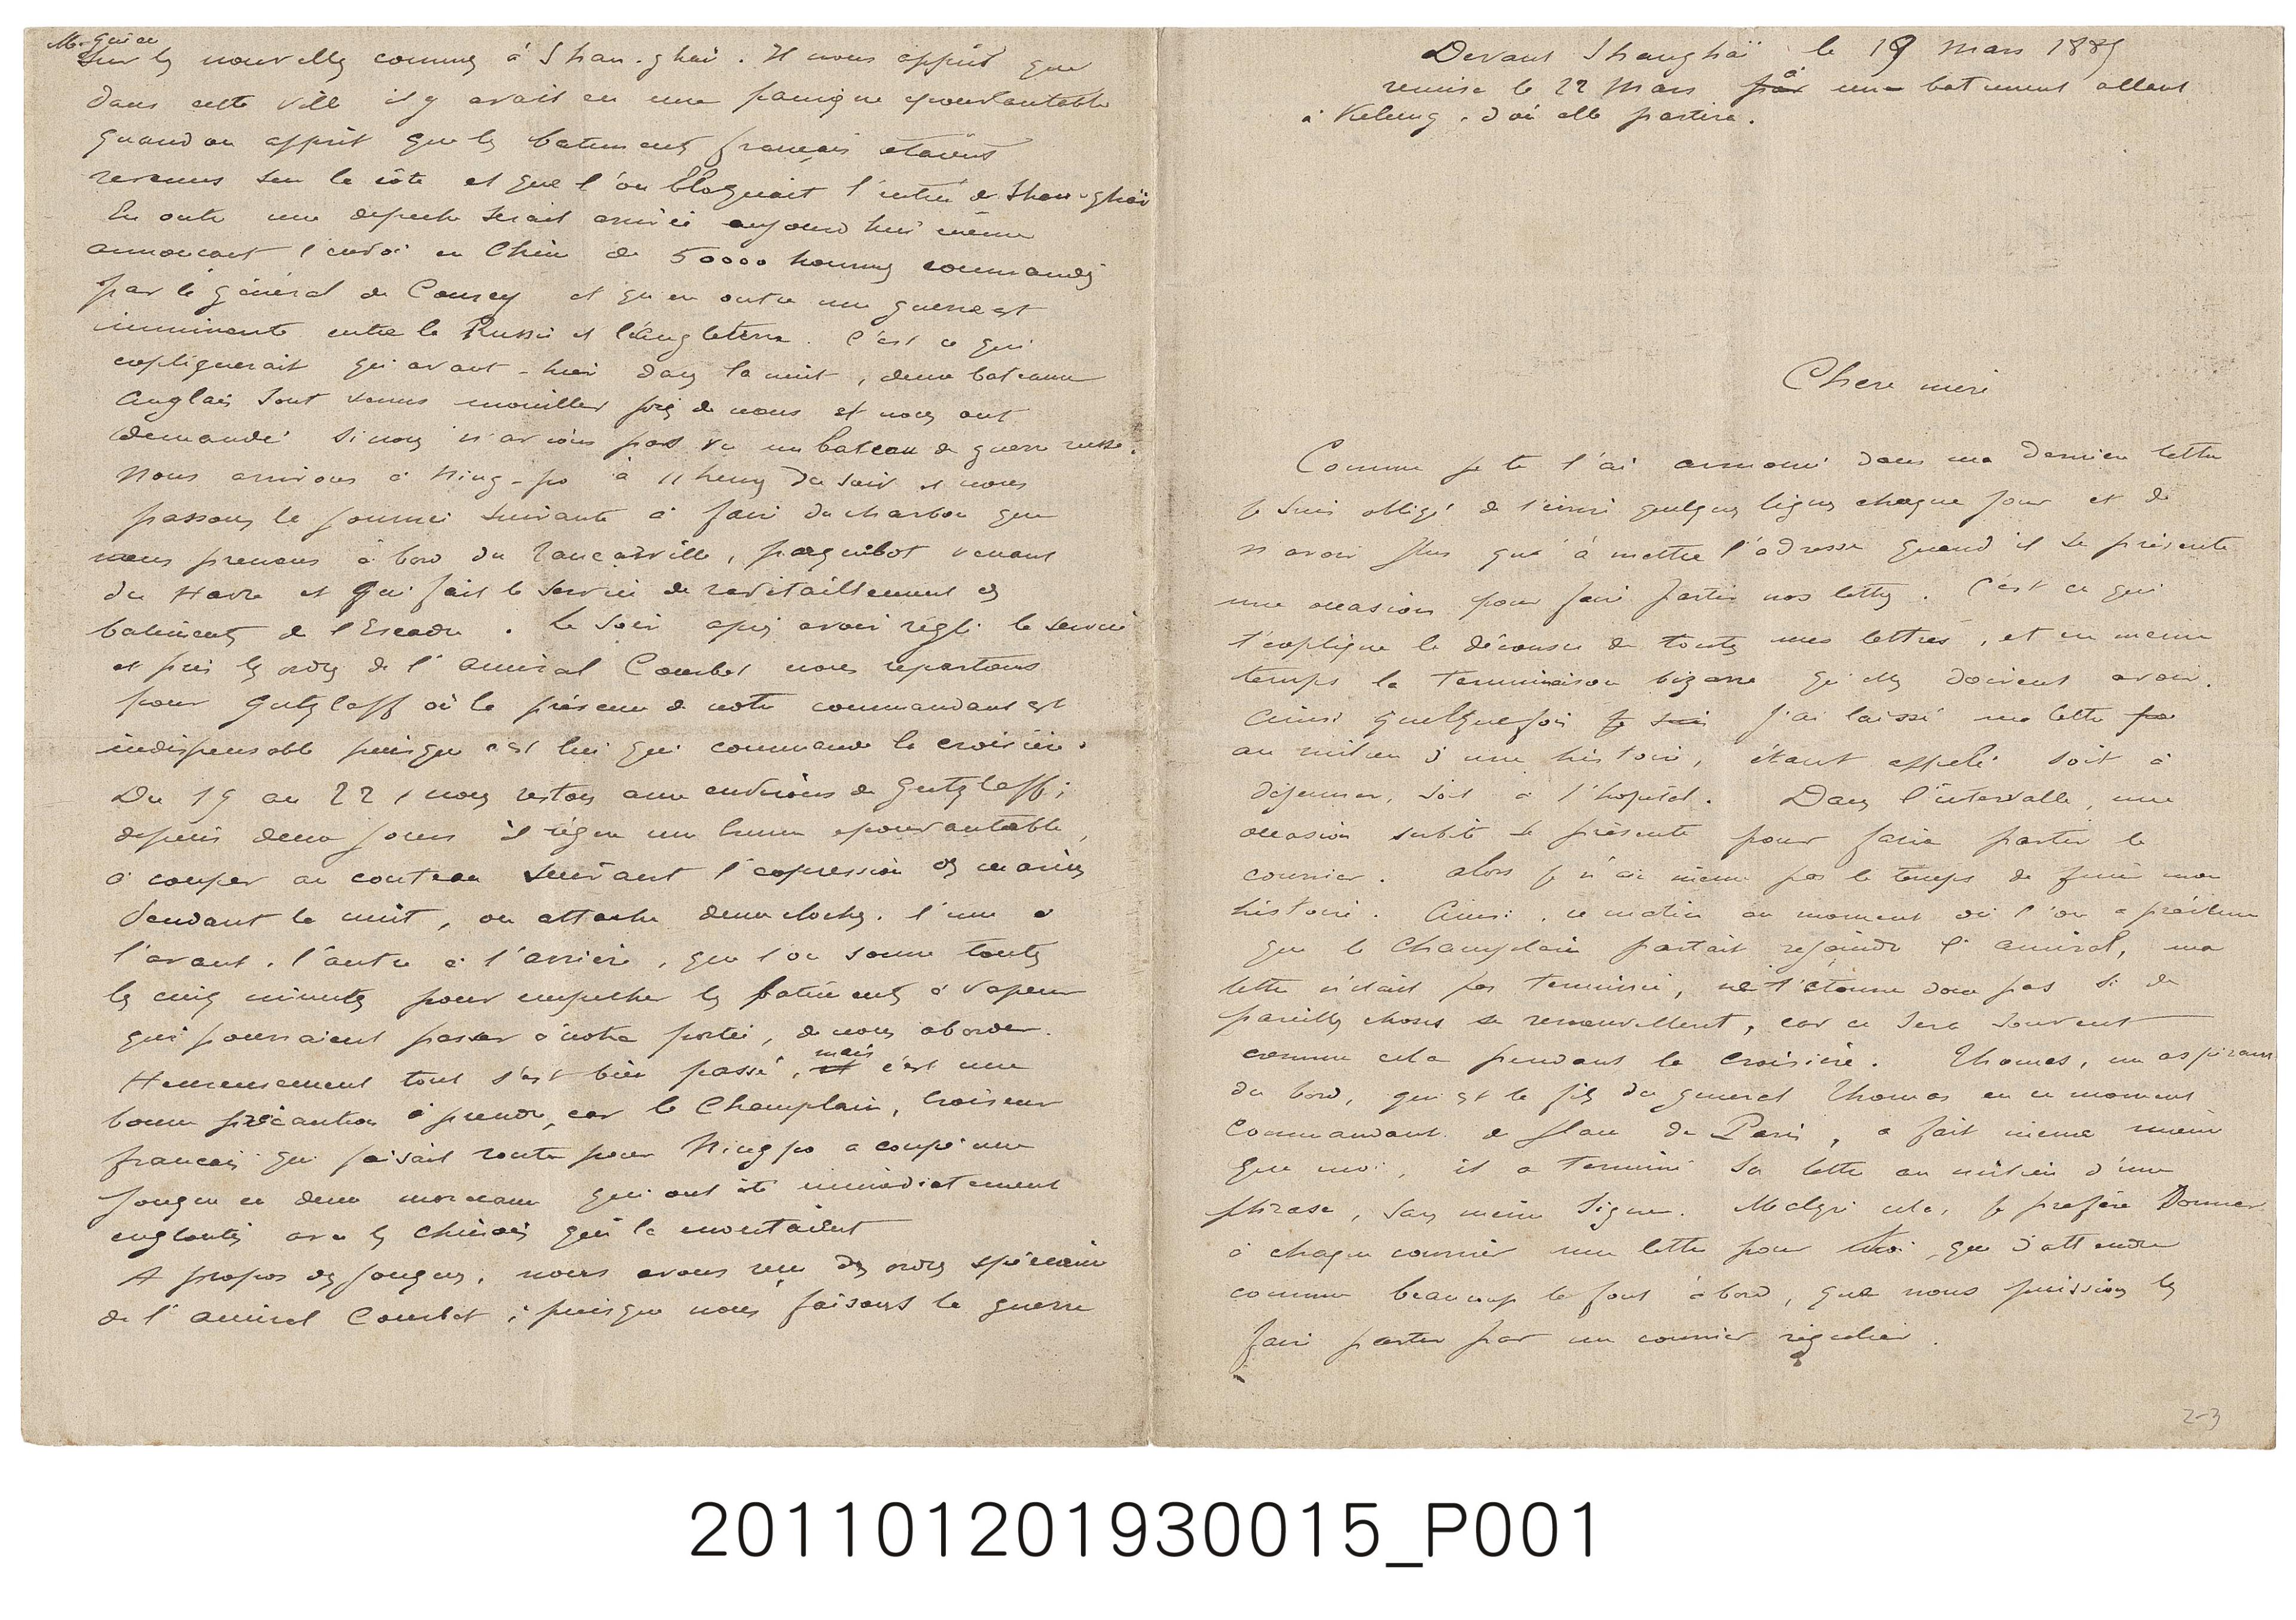 Devant Shanghaï le 19 mars 1885
remise le 22 Mars par à une batiment allant
à Kelung, d'où elle partira.
Chere mère
Comme je te l'ai annoncé dans ma derniere lettre
je suis obligé de t'ecrire quelques lignes chaque jour et de
n'avoir plus qu'à mettre l'adresse quand il se présente
une occasion pour faire partir nos lettres. C'est ce qui
t'explique le décousu de toutes mes lettres, et en meme
temps la terminaison bizarre qu'elles doivent avoir.
Ainsi quelquefois je suis j'ai laissé ma lettre pa
au milieu d'une histoire, étant appelé soit à
déjeuner, soit à l'hopital. Dans l'intervalle, une
occasion subite se présente pour faire partir le
courrier. alors je n'ai même pas le temps de finir mon
histoire. Ainsi, ce matin au moment où l'on a prévenu
que le Champlain partait rejoindre l'amiral, ma
lettre n'était pas terminée, ne t'étonne donc pas si de
pareilles choses se renouvellent, car ce sera souvent
comme cela pendant la croisière. Thomas, un aspirant
du bord, qui est le fils du general Thomas en ce moment
commandant de place de Paris, a fait meme mieux
que moi, il a terminé sa lettre au milieu d'une
phrase, sans meme signer. Malgré cela, je prefère donner
à chaque courrier une lettre pour toi, que d'attendre
comme beaucoup le font à bord, que nous puissions les
faire partir par un courrier régulier.
2-3
sur les nouvelles connues à Shan-ghaï. Il nous apprit que
dans cette ville il y avait eu une panique epouvantable
quand on apprit que les batiments français étaient
revenus sur la côte et que l'on bloquait l'entrée de Shan-ghaï
En outre une depeche serait arrivée aujourd'hui même
annoncant l'envoi en Chine de 50000 hommes commandés
par le général de Courcy et qu'en outre une guerre est
imminente entre la Russie et l'Angleterre. C'est ce qui
expliquerait qu'avant-hier dans la nuit, deux bateaux
Anglais sont venus mouiller près de nous et nous ont
demandé si nous n'avions pas vu un bateau de guerre russe.
Nous arrivons à Ning-po à 11 heures du soir et nous
passons la journée suivante à faire du charbon que
nous prenons à bord du Tancarville, paquebot venant
du Havre et qui fait le service de ravitaillement des
batiments de l'Escadre. Le soir après avoir réglé le service
et pris les ordres de l'amiral Courbet nous repartons
pour Gutzlaff où la présence de notre commandant est
indispensable puisque c'est lui qui commande la croisière.
Du 19 au 22, nous restons aux environs de Gutzlaff;
depuis deux jours il règne une brume epouvantable,
à couper au couteau suivant l'expression des marins
Pendant la nuit, on attache deux cloches. l'une à
l'avant, l'autre à l'arrière, que l'on sonne toutes
les cinq minutes pour empecher les batiments à vapeur
qui pourraient passer à notre portée, de nous aborder.
Heureusement tout s'est bien passé, et mais c'est une
bonne précaution à prendre, car le Champlain, croiseur
francais qui faisait route pour Ningpo a coupé une
jonque en deux morceaux qui ont été immédiatement
engloutis avec les chinois qui la montaient
A propos des jonques, nous avons recu des ordres spéciaux
de l'amiral Courbet; puisque nous faisons la guerre
201101201930015_P001